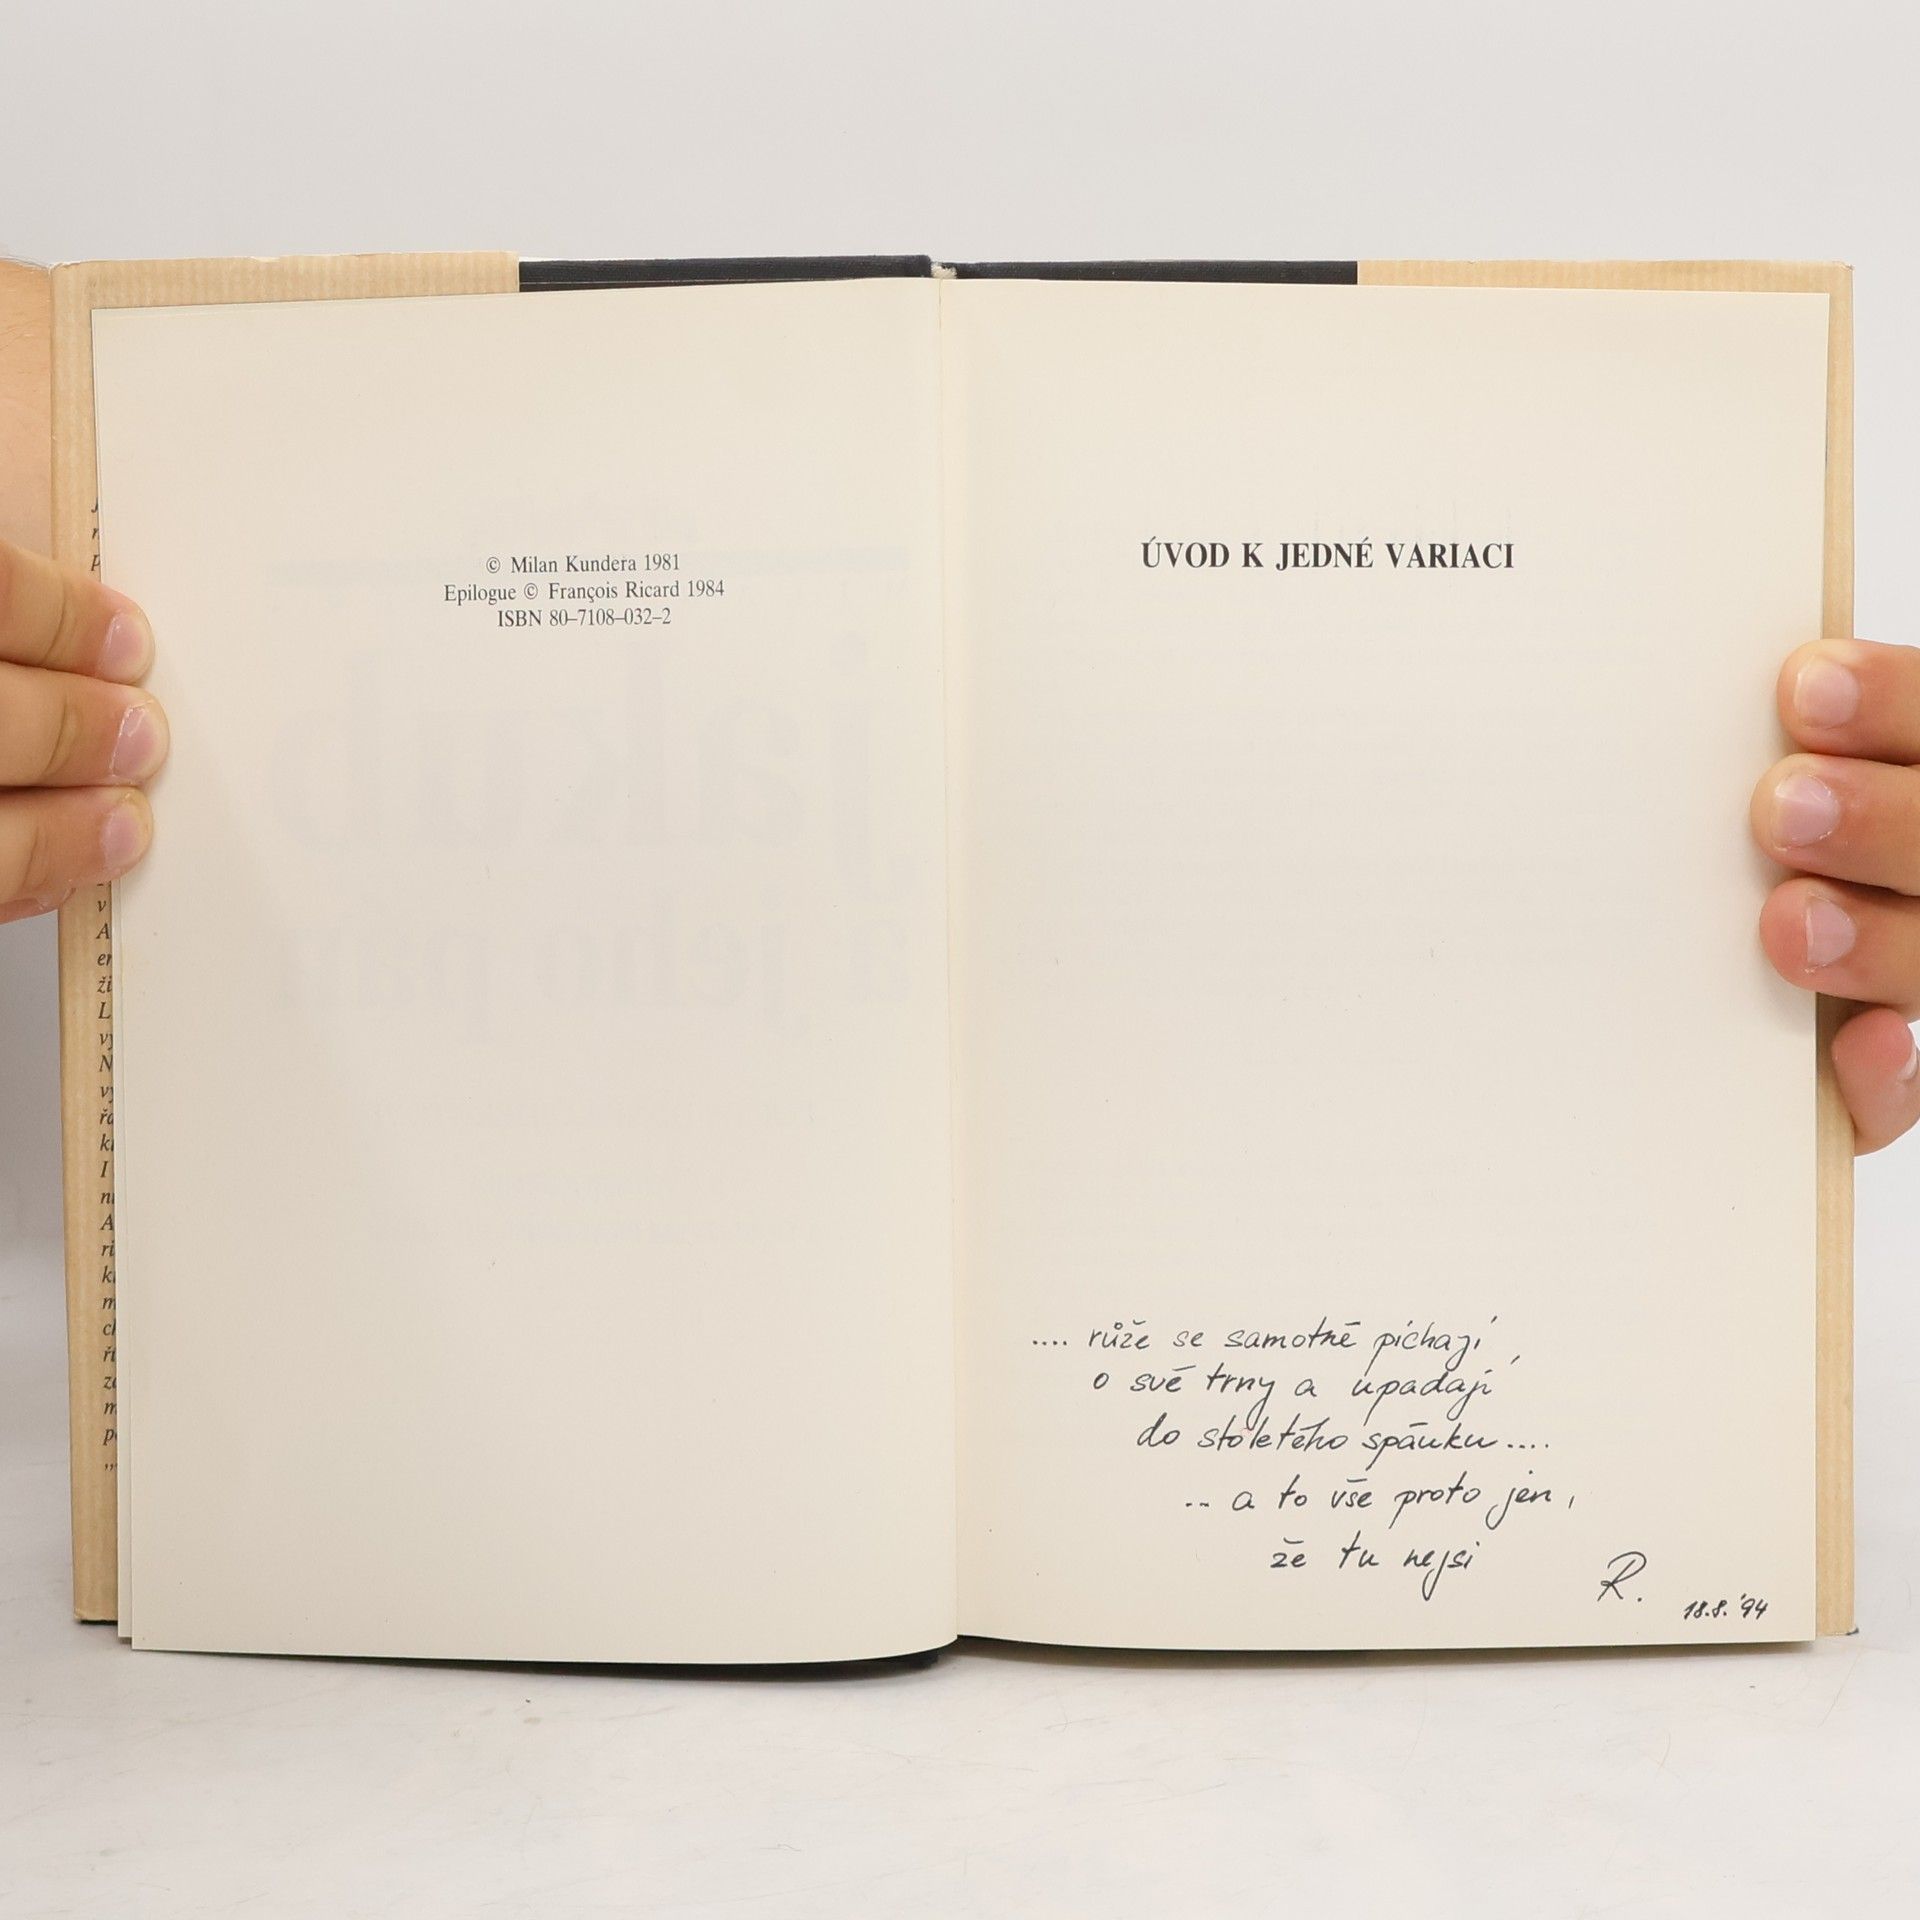 © Milan Kundera 1981
Epilogue © François Ricard 1984
ISBN 80–7108–032–2
ÚVOD K JEDNÉ VARIACI
.... růže se samotné píchají
o své trny a upadají
do stoletého spánku....
.. a to vše proto jen,
že tu nejsi
R.
18.8.'94